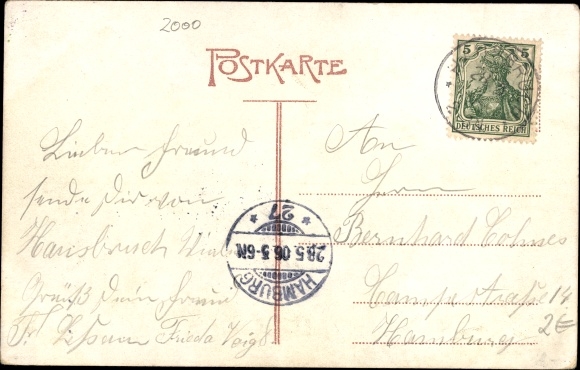 2000
POSTKARTE
5 5
DEUTSCHES REICH
Lieber Freund
sende Dir von
Hausbruch
Gruß Dein Freund
Fr. Frieda Voigt
HAMBURG
28.5.06.5-6N
* 27 *
An
Herrn
Bernhard Cohnes
straße 14
Hamburg
2€